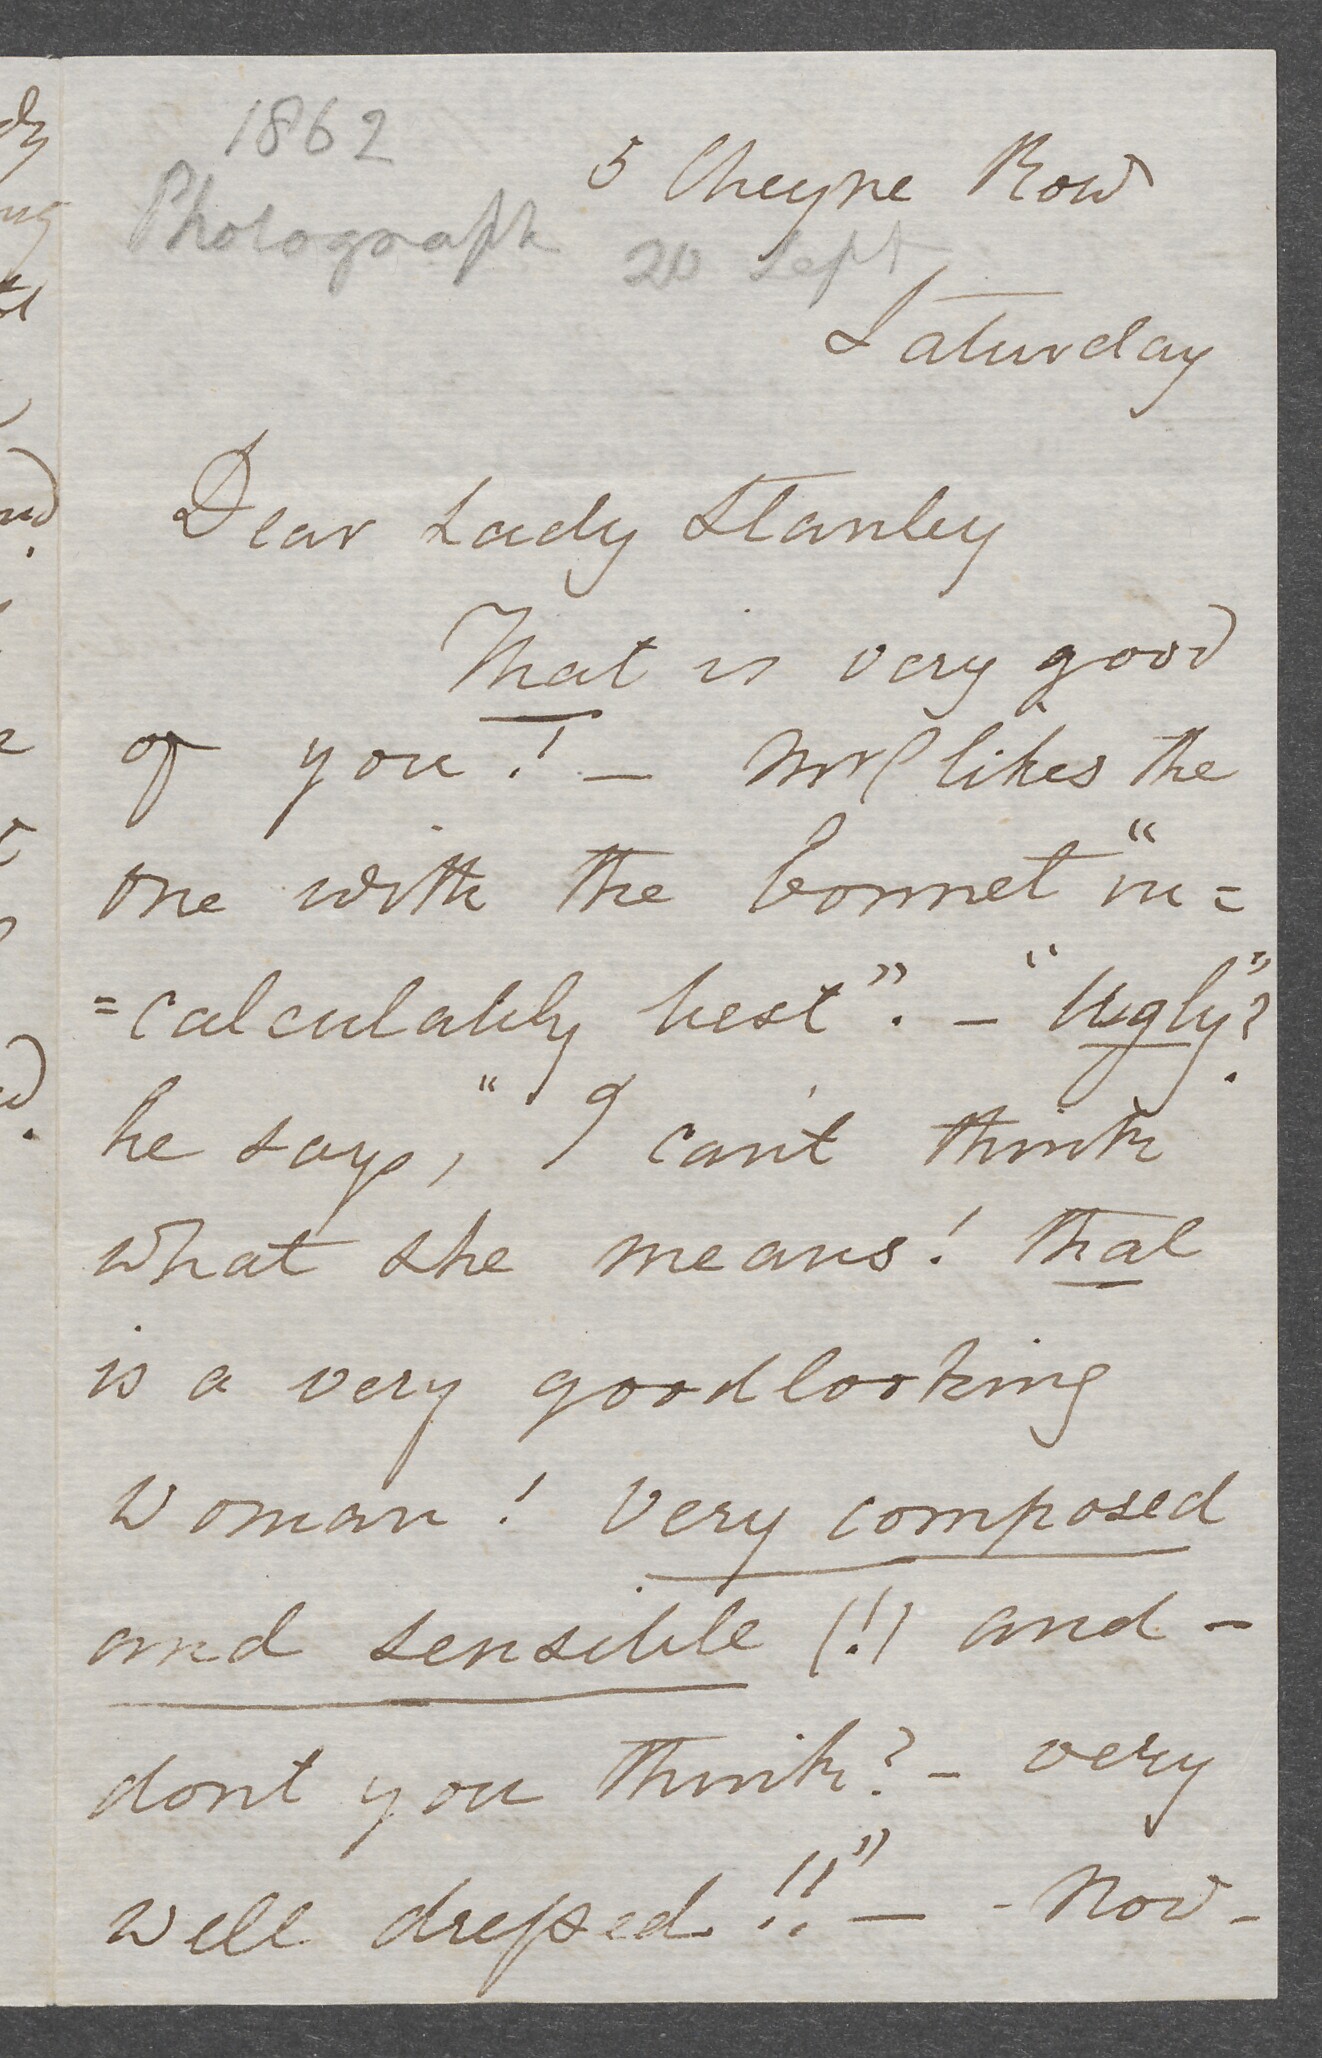 1862
5 Cheyne Row
Photograph 20 Sept
Saturday
Dear Lady Stanley
That is very good
of you! — Mr C likes the
one with the bonnet "in=
=calculably best". — "Ugly"?
he says, "I can't think
what she means! that
is a very goodlooking
woman! very composed
and sensible (!) and —
dont you think? — very
well dressed!!" — - Now -